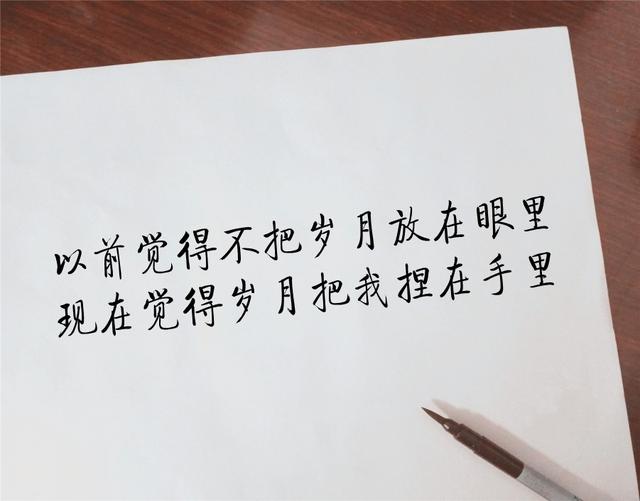 以前觉得不把岁月放在眼里
现在觉得岁月把我捏在手里